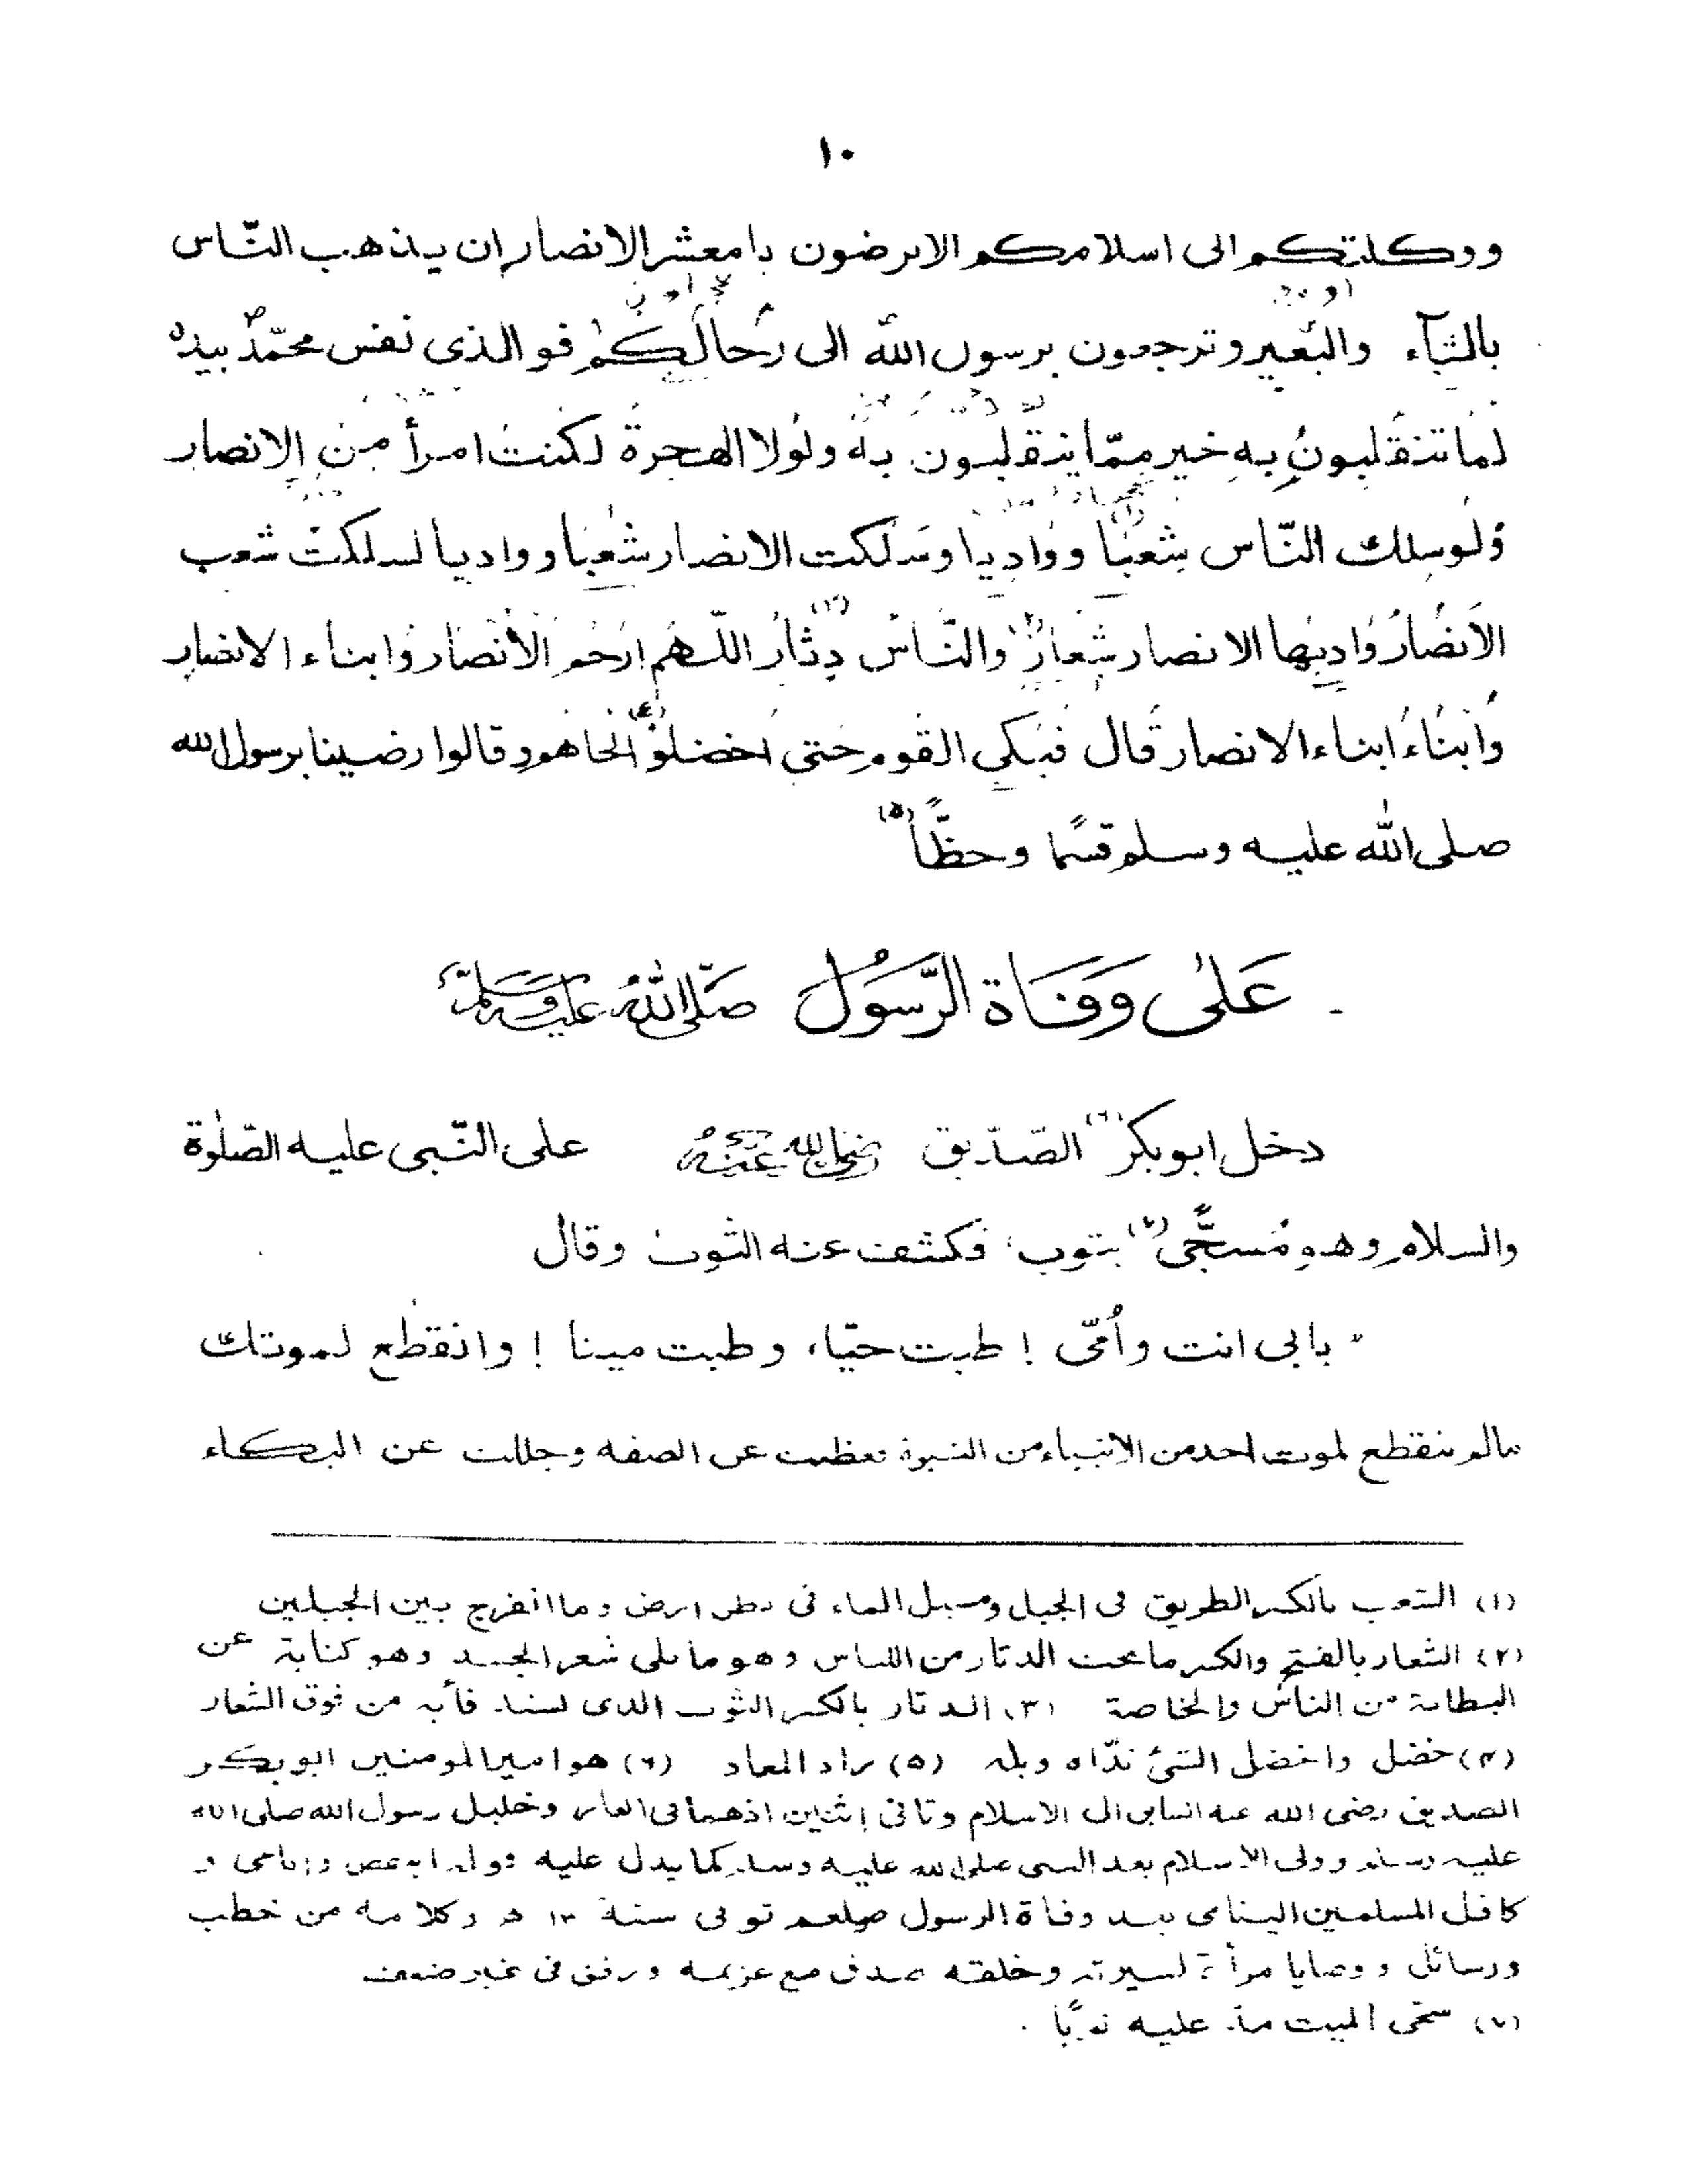 ١٠
ووكلتكم الى اسلامكم الا ترضون يا معشر الانصار ان يذهب النّاس
بالشآء والبعير وترجعون برسول الله الى رحالكم فو الذى نفس محمّد بيده
لما تنقلبون به خير ممّا ينقلبون به ولولا الهجرة لكنت امرأ من الانصار
ولو سلك النّاس شعبا (١) وواديا وسلكت الانصار شعبا وواديا لسلكت شعب
الانصار وواديها الانصار شعار (٢) والنّاس دثار (٣) اللّهم ارحم الانصار وابناء الانصار
وابناء ابناء الانصار قال فبكى القوم حتى اخضلوا (٤) لحاهم وقالوا رضينا برسول الله
صلى الله عليه وسلم قسمًا وحظّاً (٥)
على وفاة الرّسول صلّى الله عليه وسلم
دخل ابوبكر (٦) الصّدّيق رضى الله عنه على النّبى عليه الصّلوة
والسلام وهو مُسجًّى (٧) بثوب، فكشف عنه الثوب وقال
" بابى انت وأمّى ! طبت حيّا، وطبت ميتا ! وانقطع لموتك
مالم ينقطع لموت احد من الانبياء من النبوة فعظمت عن الصفه وجللت عن البكاء
(١) الشعب بالكسر الطريق فى الجبل ومسيل الماء فى بطن ارض وما انفرج بين الجبلين
(٢) الشعار بالفتح والكسر ما تحت الدثار من اللباس وهو ما يلى شعر الجسد وهو كناية عن
البطانة من الناس والخاصة (٣) الدثار بالكسر الثوب الذى من فوق الشعار
(٤) خضل واخضل الشئ ندّاه وبله (٥) زاد المعاد (٦) هو امير المومنين ابوبكر
الصديق رضى الله عنه السابق الى الاسلام وثانى اثنين اذهما فى الغار وخليل رسول الله صلى الله
عليه وسلم وولى الاسلام بعد النبى صلى الله عليه وسلم كما يدل عليه قوله و
كافل المسلمين اليتامى بعد وفاة الرسول صلعم توفى سنة ١٣ هـ وكلامه من خطب
ورسائل ووصايا مرأة لسيرته وخلقه صدق مع عزيمه ورفق فى غير ضعف
(٧) سجّى الميت مدّ عليه ثوبًا .